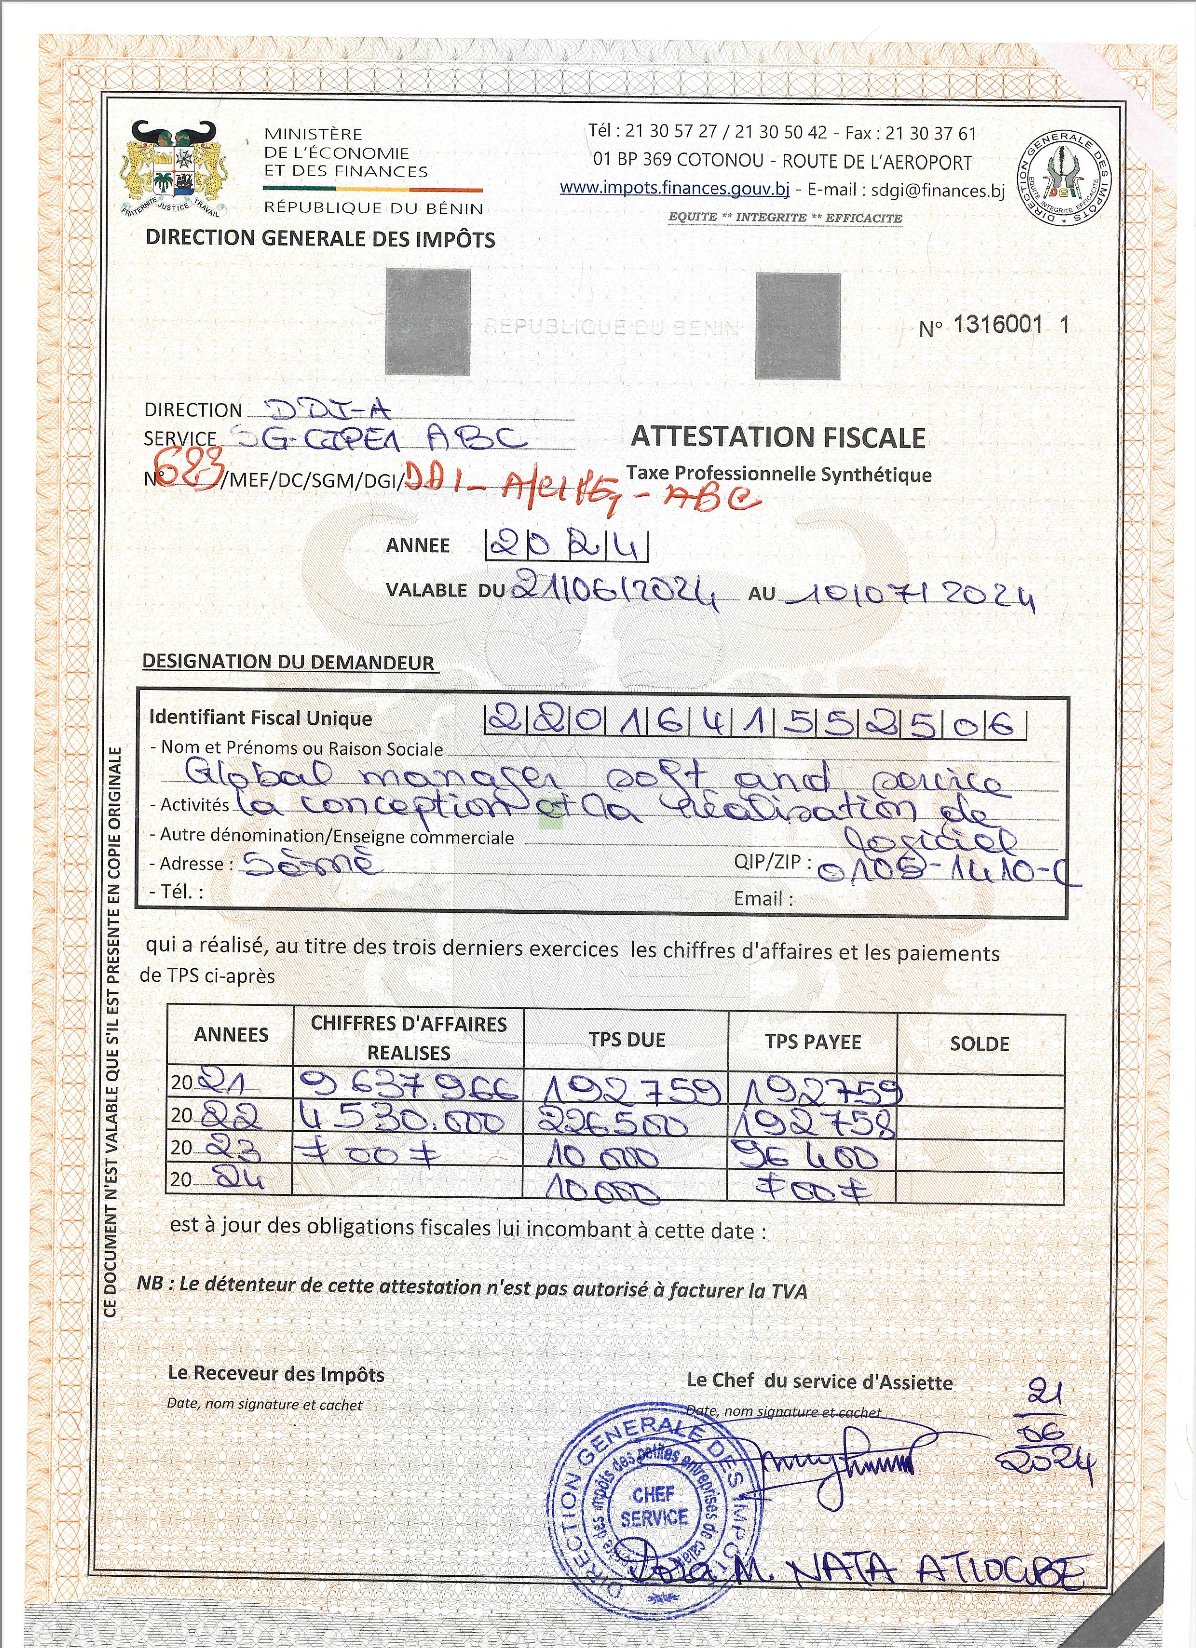 MINISTÈRE
DE L'ÉCONOMIE
ET DES FINANCES
RÉPUBLIQUE DU BÉNIN
FRATERNITE JUSTICE TRAVAIL
DIRECTION GENERALE DES IMPÔTS
Tél : 21 30 57 27 / 21 30 50 42 - Fax : 21 30 37 61
01 BP 369 COTONOU - ROUTE DE L'AEROPORT
www.impots.finances.gouv.bj - E-mail : sdgi@finances.bj
EQUITE ** INTEGRITE ** EFFICACITE
DIRECTION GENERALE DES IMPÔTS
EQUITE INTEGRITE EFFICACITE
REPUBLIQUE DU BENIN
N° 1316001 1
DIRECTION DDI-A
SERVICE SG-CIPE1 ABC
ATTESTATION FISCALE
Taxe Professionnelle Synthétique
N° 623/MEF/DC/SGM/DGI/DDI-A/CIPE1-ABC
ANNEE |2|0|2|4|
VALABLE DU 21/06/2024 AU 10/07/2024
DESIGNATION DU DEMANDEUR
Identifiant Fiscal Unique |2|2|0|1|6|4|1|5|5|2|5|0|6|
- Nom et Prénoms ou Raison Sociale
Global manager soft and service
- Activités la conception et la réalisation de
logiciel
- Autre dénomination/Enseigne commerciale
- Adresse : Sèmè QIP/ZIP :
- Tél. : Email :
qui a réalisé, au titre des trois derniers exercices les chiffres d'affaires et les paiements
de TPS ci-après
ANNEES CHIFFRES D'AFFAIRES REALISES TPS DUE TPS PAYEE SOLDE
2021 9 637 966 192 759 192 759
2022 4 530.000 226 500 192 758
2023 ≠ 00 ≠ 10 000 96 400
2024 10 000 ≠ 00 ≠
est à jour des obligations fiscales lui incombant à cette date :
NB : Le détenteur de cette attestation n'est pas autorisé à facturer la TVA
CE DOCUMENT N'EST VALABLE QUE S'IL EST PRESENTE EN COPIE ORIGINALE
Le Receveur des Impôts
Date, nom signature et cachet
Le Chef du service d'Assiette
Date, nom signature et cachet
21
06
2024
DIRECTION GENERALE DES IMPÔTS
des impôts des petites entreprises de
CHEF
SERVICE
M. NATA ATIOGBE